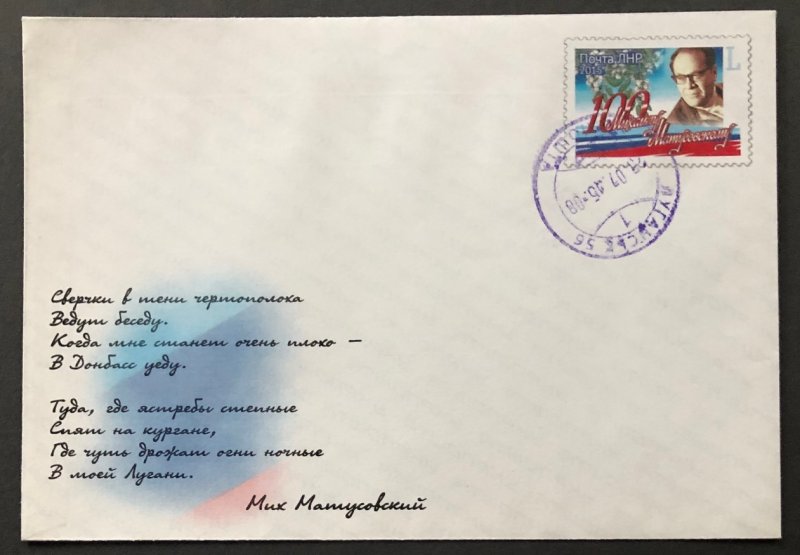 Почта ЛНР
2015
L
100
Михаилу
Матусовскому
ПОШТА
.07.15-08
1
ЛУГАНСЬК 56
Сверчки в тени чертополоха
Ведут беседу.
Когда мне станет очень плохо –
В Донбасс уеду.
Туда, где ястребы степные
Спят на кургане,
Где чуть дрожат огни ночные
В моей Лугани.
Мих Матусовский